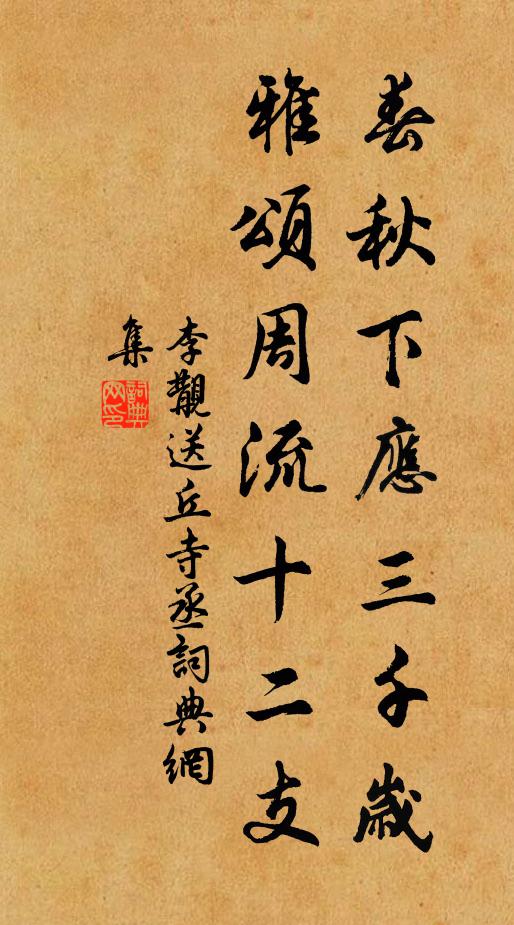 春秋下應三千歲
雅頌周流十二支
李覯送丘寺丞詞典網
集
詞典網印